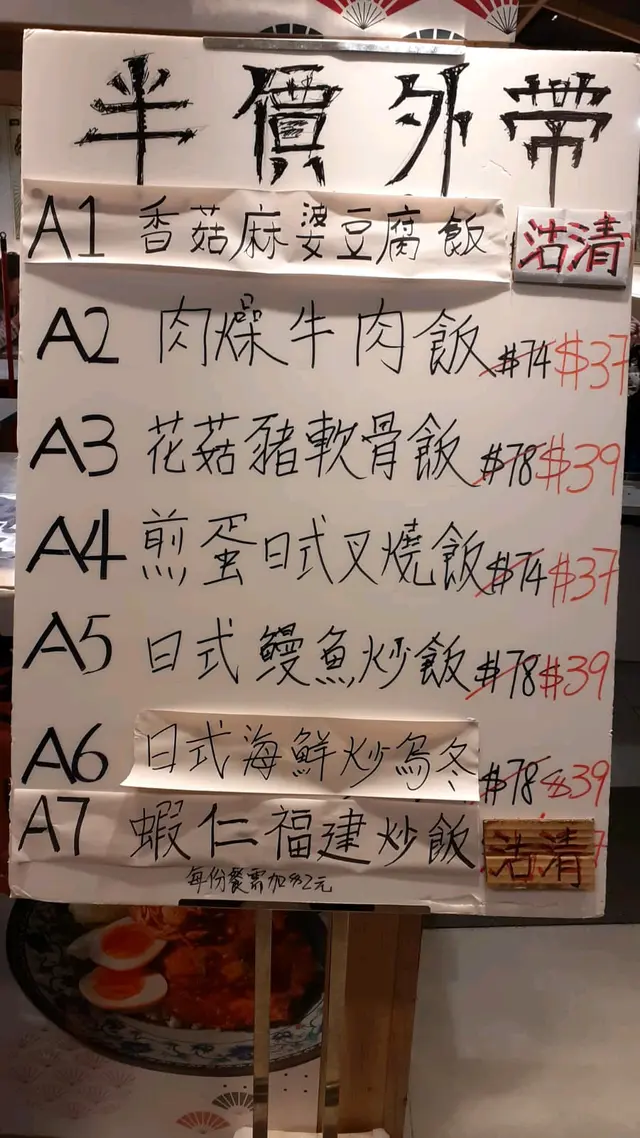 半價外帶
A1 香菇麻婆豆腐飯 沽清
A2 肉燥牛肉飯 $74 $37
A3 花菇豬軟骨飯 $78 $39
A4 煎蛋日式叉燒飯 $74 $37
A5 日式鰻魚炒飯 $78 $39
A6 日式海鮮炒烏冬 $78 $39
A7 蝦仁福建炒飯 沽清
每份餐需加$2元